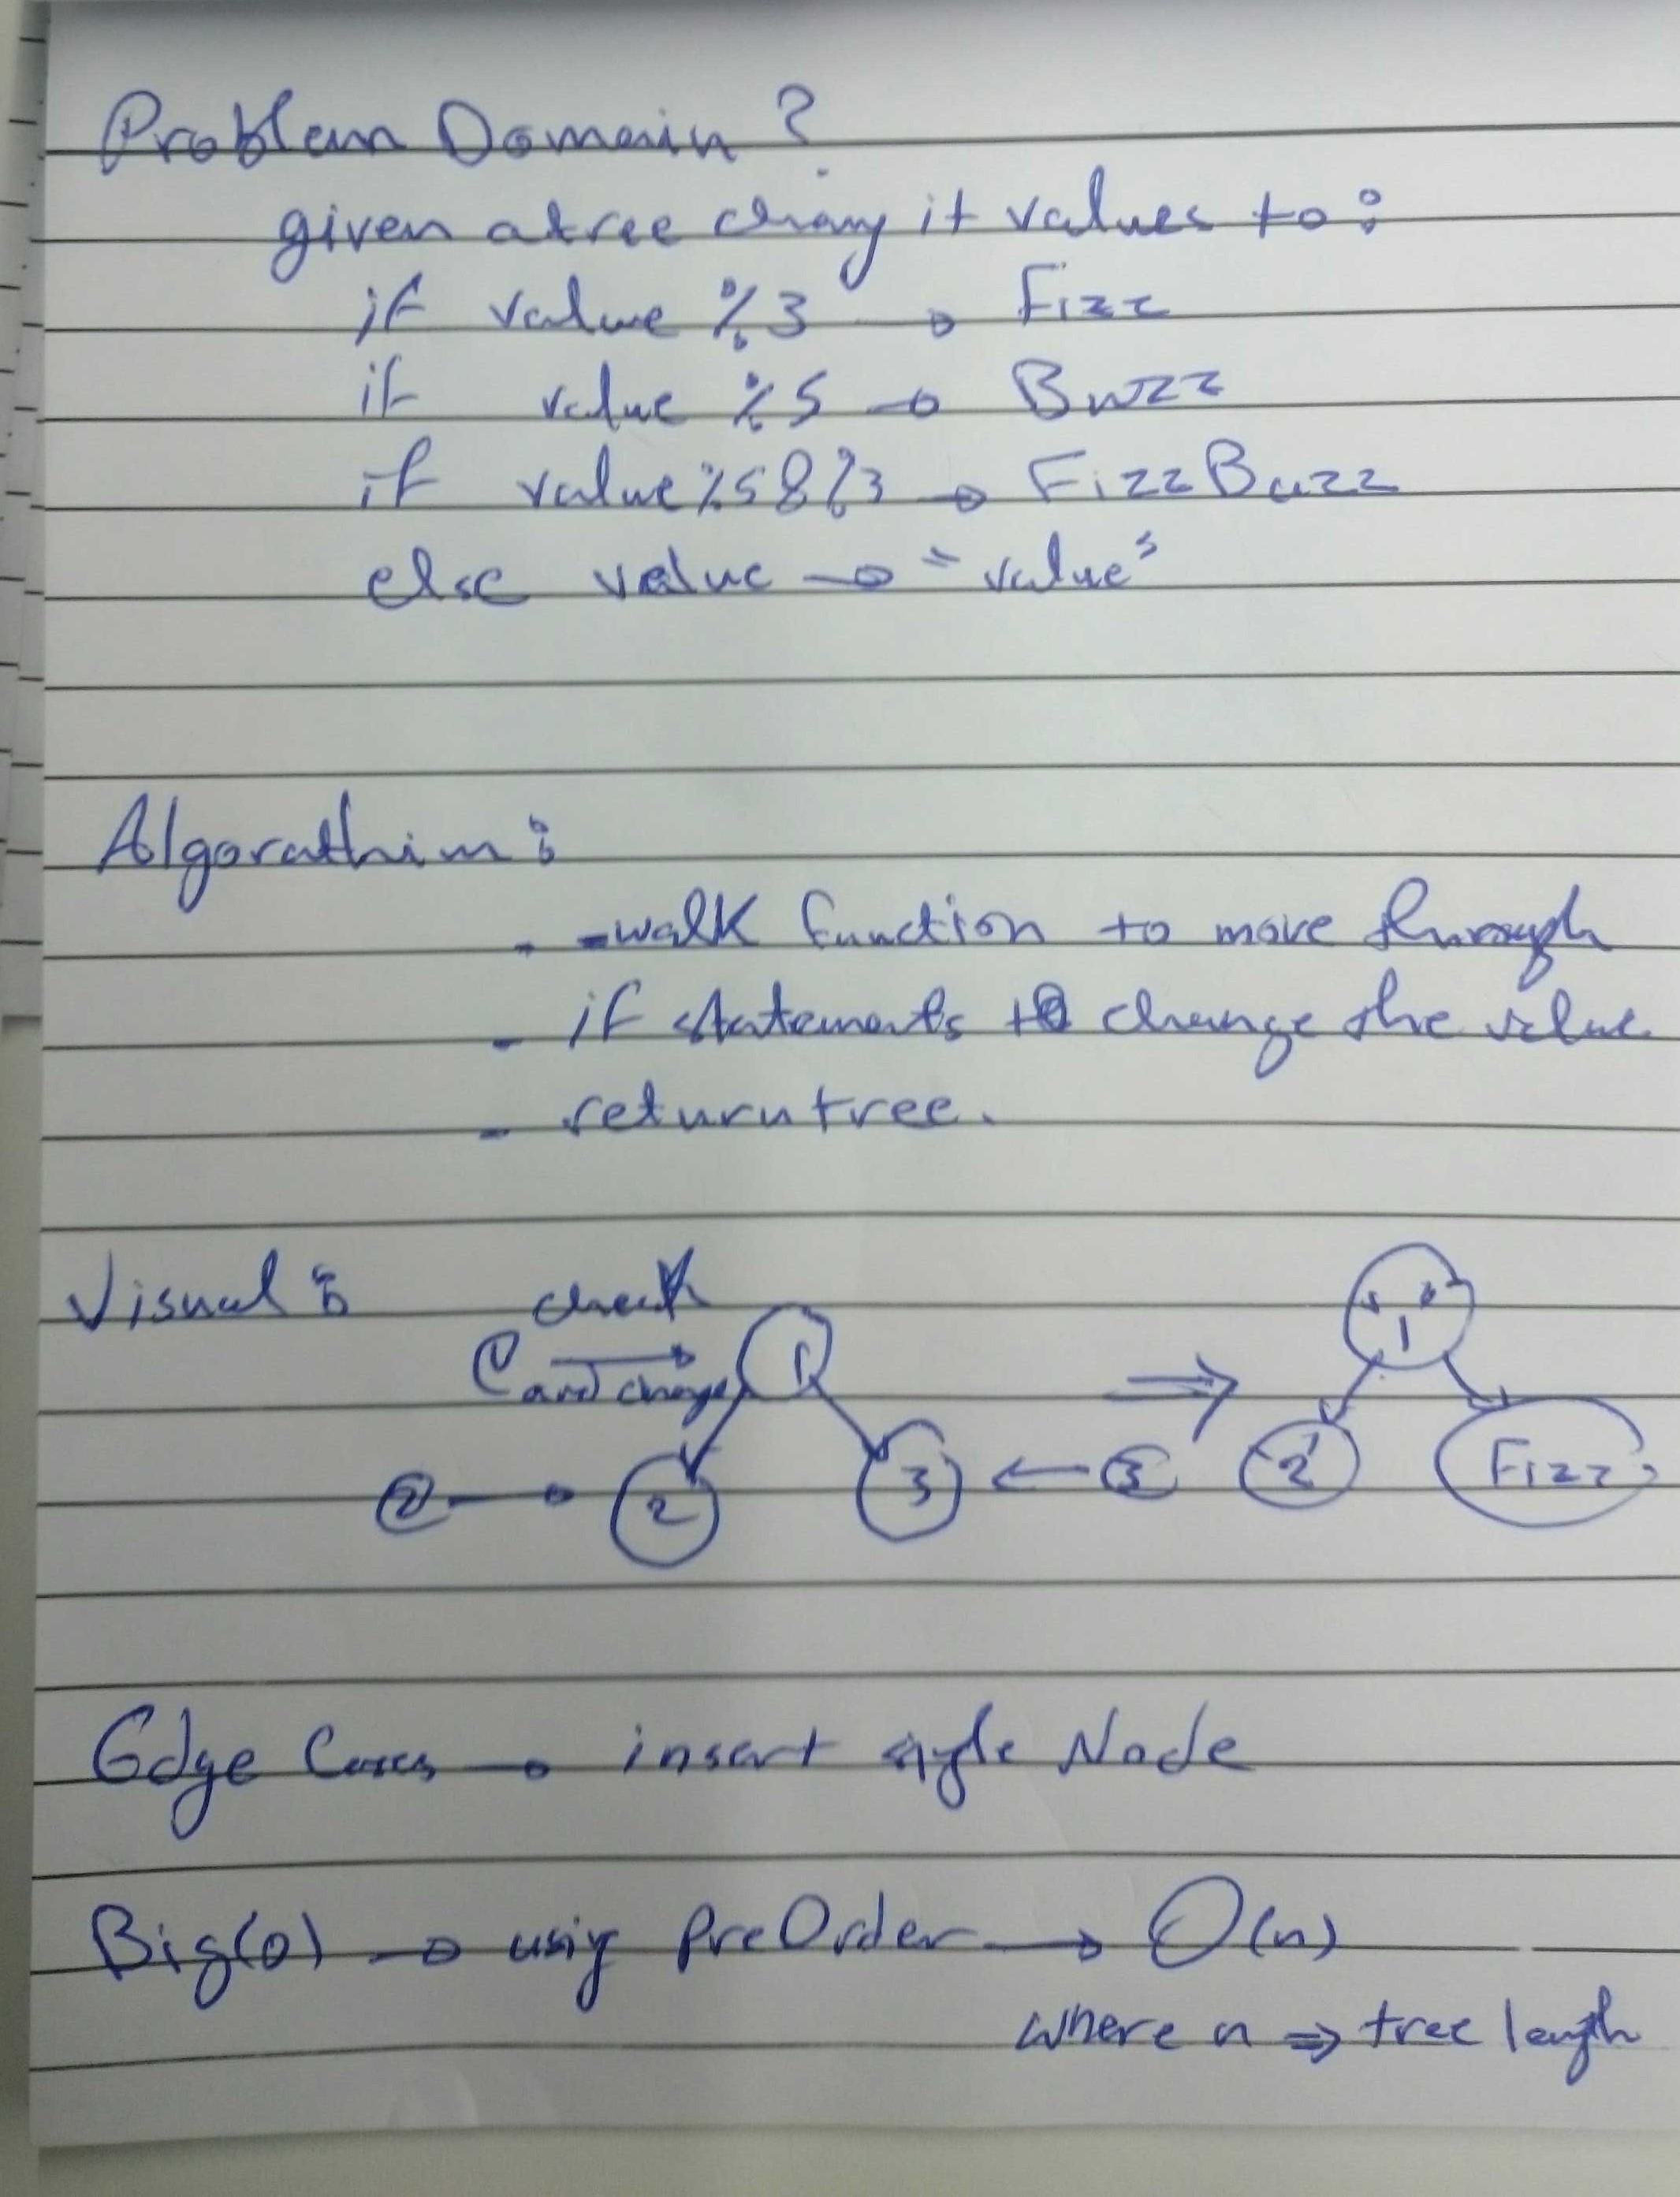 Problem Domain ?
given a tree chang it values to :
if value % 3 → Fizz
if value % 5 → Buzz
if value % 5 & % 3 → FizzBuzz
else value → "value"
Algorathim :
- walk function to move through
- if statements to change the value
- return tree.
Visual :
check
① → and change
1
2
3
② →
← ③
⇒
'1'
'2'
Fizz
Edge Cases → insert single Node
Big(O) → using PreOrder → O(n)
where n ⇒ tree length